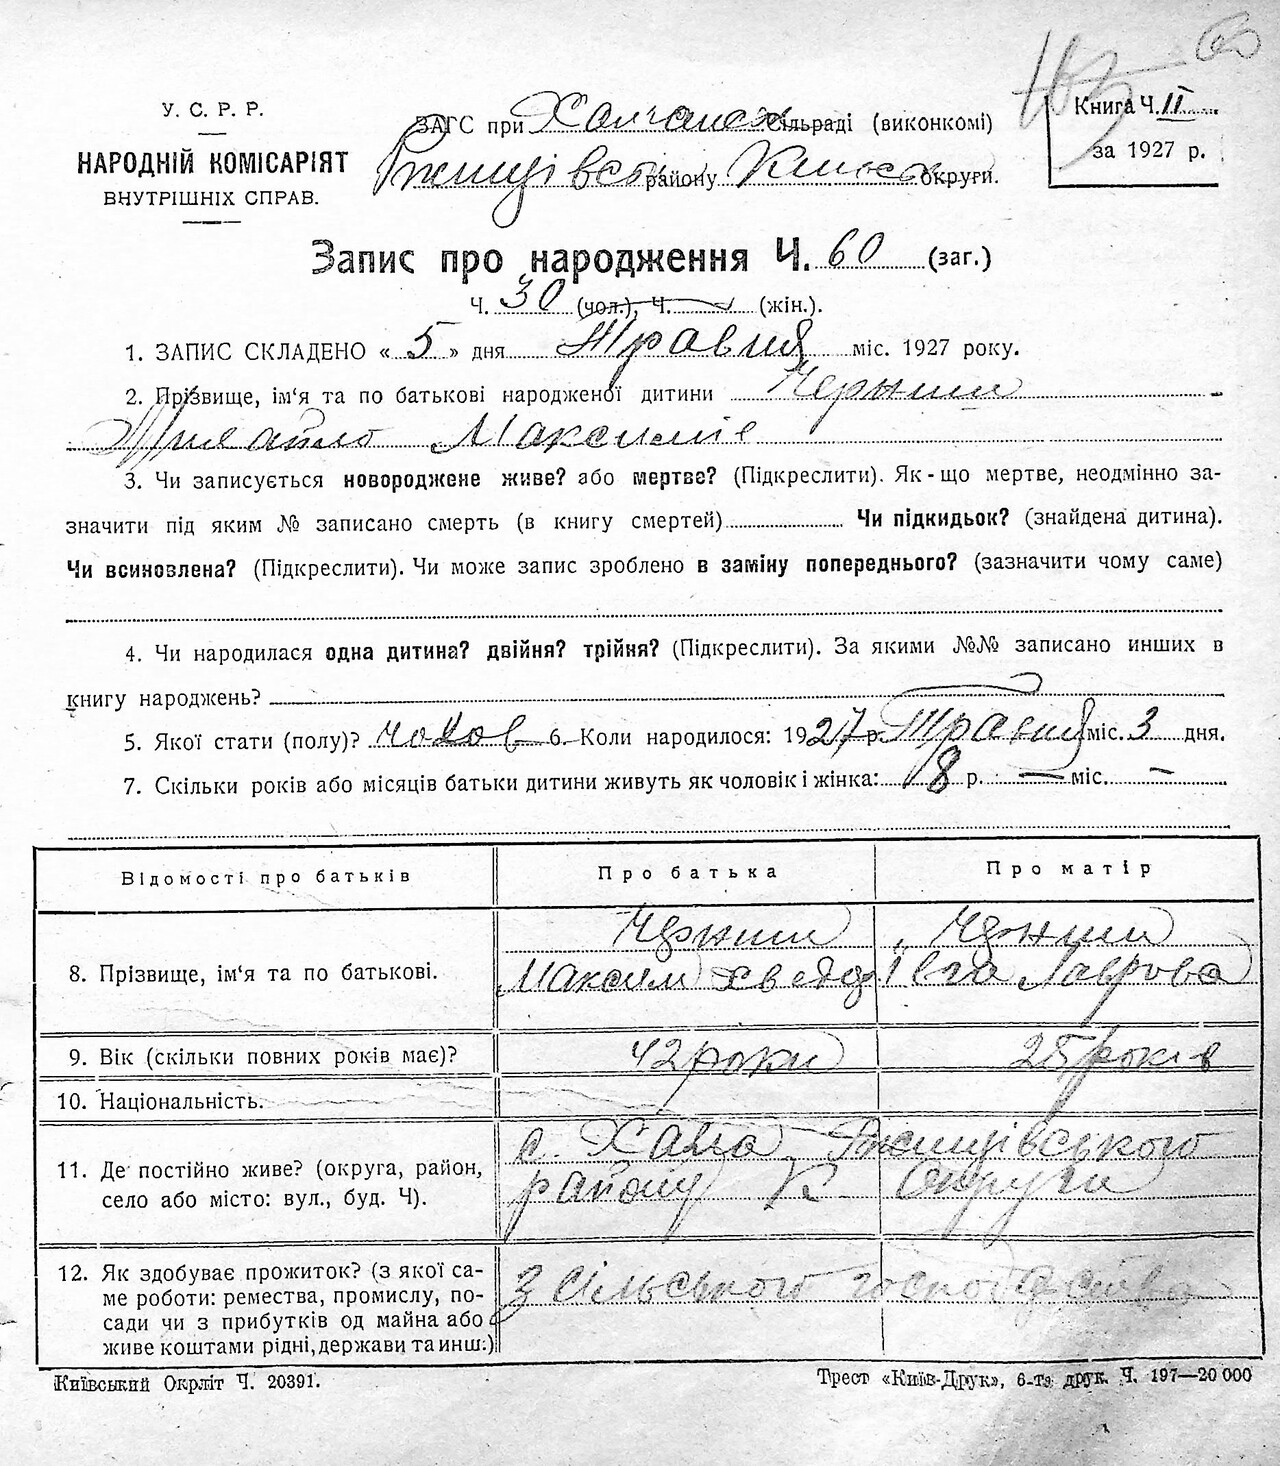 У. С. Р. Р.
НАРОДНІЙ КОМІСАРІЯТ
ВНУТРІШНІХ СПРАВ.
ЗАГС при Сільраді (виконкомі)
району округи.
Книга Ч. II
за 1927 р.
Запис про народження Ч. 60 (заг.)
Ч. 30 (чол.), Ч. (жін.).
1. ЗАПИС СКЛАДЕНО « 5 » дня Травня міс. 1927 року.
2. Прізвище, ім'я та по батькові народженої дитини Черниш
Михайло Максимів
3. Чи записується новороджене живе? або мертве? (Підкреслити). Як-що мертве, неодмінно за-
значити під яким № записано смерть (в книгу смертей) Чи підкидьок? (знайдена дитина).
Чи всиновлена? (Підкреслити). Чи може запис зроблено в заміну попереднього? (зазначити чому саме)
4. Чи народилася одна дитина? двійня? трійня? (Підкреслити). За якими №№ записано инших в
книгу народжень?
5. Якої стати (полу)? чолов 6. Коли народилося: 1927 р. Травня міс. 3 дня.
7. Скільки років або місяців батьки дитини живуть як чоловік і жінка: 8 р. — міс. —
Відомості про батьків Про батька Про матір
Черниш Черниш
8. Прізвище, ім'я та по батькові. Максим Хведо Івга Лаврова
9. Вік (скільки повних років має)? 42 роки 25 років
10. Національність.
с. Ржищівського
11. Де постійно живе? (округа, район, району К Округи
село або місто: вул., буд. Ч).
12. Як здобуває прожиток? (з якої са- З сільського господарства
ме роботи: ремества, промислу, по-
сади чи з прибутків од майна або
живе коштами рідні, держави та инш.)
Київський Окрліт Ч. 20391.
Трест «Київ-Друк», 6-та друк. Ч. 197—20 000